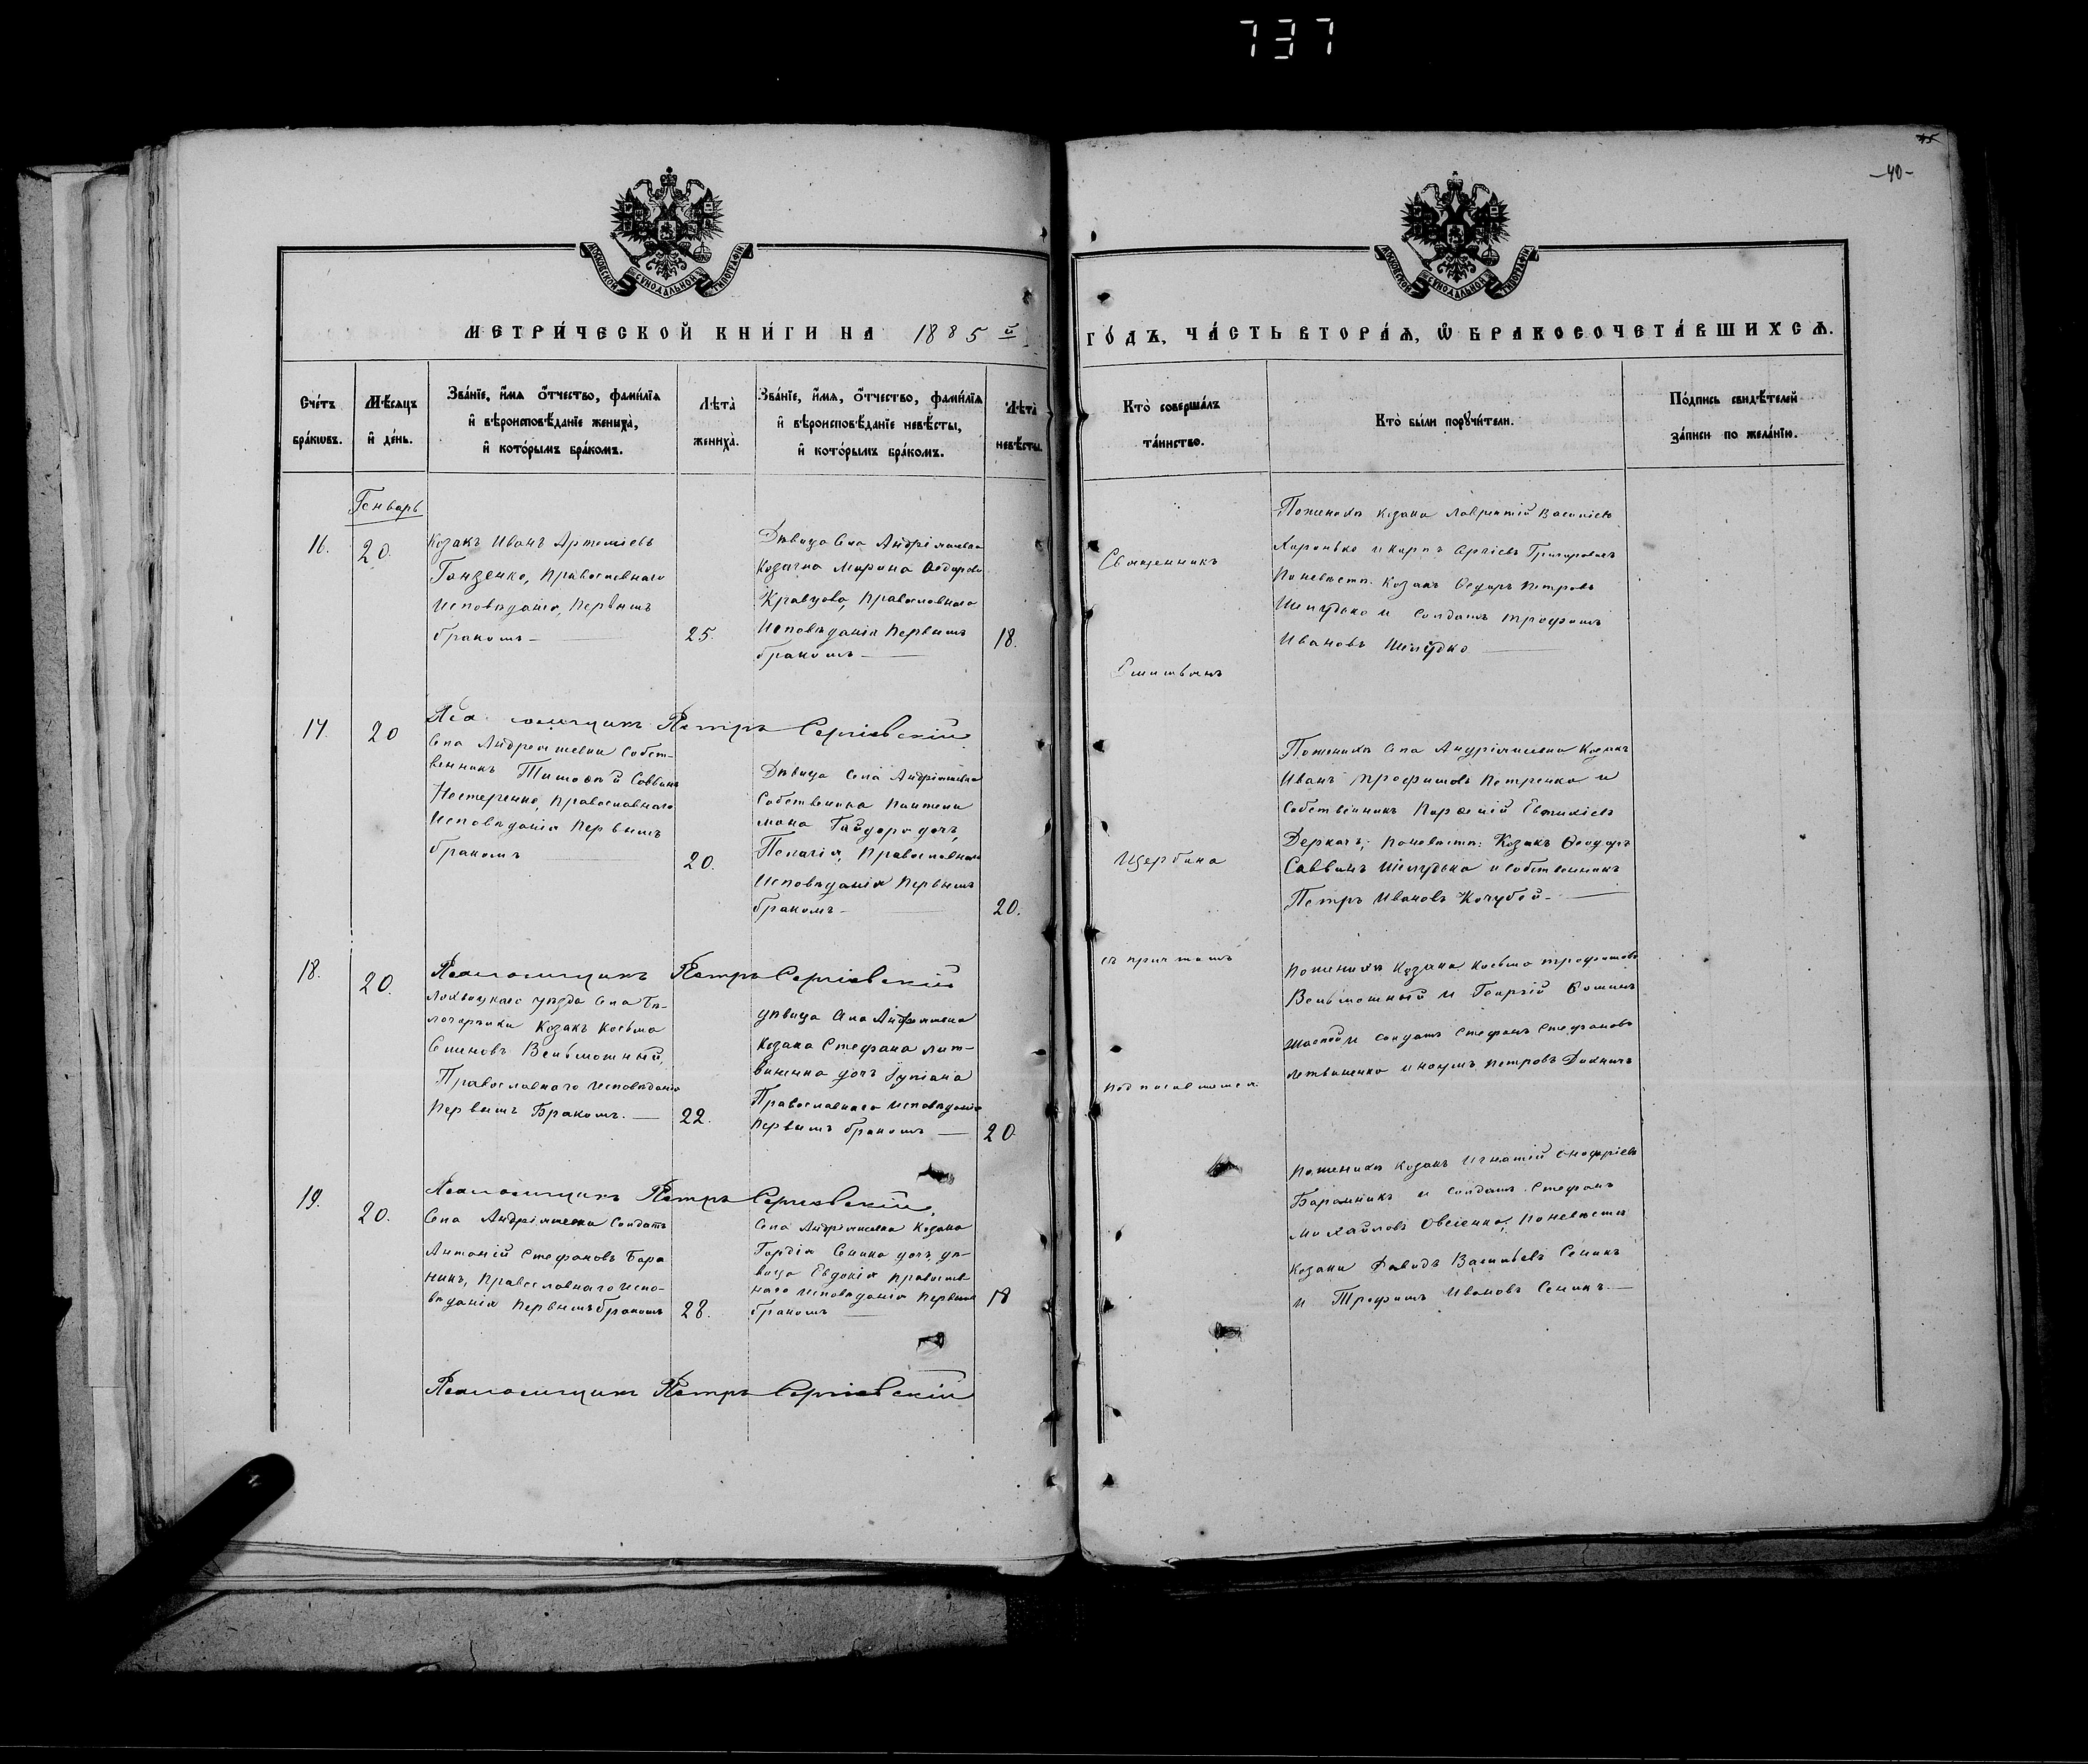 737
45
-40-
МОСКОВСКОЙ СѴНОДАЛЬНОЙ ТИПОГРАФІИ
МОСКОВСКОЙ СѴНОДАЛЬНОЙ ТИПОГРАФІИ
МЕТРИ́ЧЕСКОЙ КНИ́ГИ НА 1885 й
ГО́ДЪ, ЧА́СТЬ ВТОРА́Ѧ, Ѡ҆ БРАКОСОЧЕТА́ВШИХСѦ.
Сче́тъ
бра́кѡвъ.
Мѣ́сяцъ
и҆ де́нь.
Зва́нїе, и҆́мѧ ѻ҆́тчество, фами́лїѧ
и҆ вѣроисповѣ́данїе жениха̀,
и҆ кото́рымъ бра́комъ.
Лѣ́та̀
жениха̀.
Зва́нїе, и҆́мѧ, ѻ҆́тчество, фами́лїѧ
и҆ вѣроисповѣ́данїе невѣ́сты,
и҆ кото́рымъ бра́комъ.
Лѣ́та̀
невѣ́сты.
Кто̀ соверша́лъ
та́инство.
Кто̀ бы́ли порꙋчи́тели.
По́дпись свидѣ́телей
за́писи по жела́нїю.
Генварь
16.
20.
Козакъ Иванъ Артеміевъ
Ганзенко, Православнаго
Исповѣданія, Первымъ
бракомъ
25.
Дѣвица Села Андріяшевки
Козачка Марина Ѳедорова
Кравцова, Православнаго
Исповѣданія Первымъ
бракомъ
18.
Священникъ
Стефанъ
Щербина
съ причтомъ
По женихѣ Козаки Лаврентій Василіевъ
Харонько и Карпъ Григоровичъ
По невѣстѣ: Козакъ Ѳедоръ Петровъ
Шелудько и Солдатъ Трофимъ
Ивановъ Шелудко
Псаломщикъ Петръ Сергіевскій
17.
20
Села Андреяшевки Собст-
венникъ Тимоѳей Саввинъ
Нестеренко, Православнаго
Исповѣданія Первымъ
бракомъ
20.
Дѣвица Села Андріяшевки
Собственника Пантели
мона Гайдора дочь,
Пелагія, Православнаго
Исповѣданія Первымъ
бракомъ
20.
По женихѣ Села Андріяшевки Козакъ
Иванъ Трофимовъ Петренко и
Собственникъ Евтихіевъ
Деркачъ; По невѣстѣ: Козакъ Ѳеодоръ
Саввинъ Шелудько и Собственникъ
Петръ Ивановъ Кочубей
Псаломщикъ Петръ Сергіевскій
18.
20.
Лохвицкаго уѣзда Села Бѣ-
логорѣлки Козакъ Косьма
Вельможный,
Православнаго Исповѣданія
Первымъ Бракомъ.
22.
дѣвица Села Андріяшевки
Козака Стефана Лит-
виненка дочь
Православнаго Исповѣданія
Первымъ бракомъ
20
По женихѣ Козаки Косьма Трофимовъ
Вельможный и Георгій Ѳоминъ
и Солдатъ Стефанъ Стефановъ
Литвиненко и Наумъ Петровъ
Псаломщикъ Петръ Сергіевскій.
19.
20.
Села Андріяшевки Солдатъ
Антоній Стефановъ Бара
никъ, Православнаго Испо-
вѣданія Первымъ бракомъ
28.
Села Андріяшевки Козака
Гордія Сеника дочь дѣ-
вица Евдокія Православ
наго Исповѣданія Первымъ
бракомъ
18
По женихѣ Козакъ Игнатій Онофріевъ
и Солдатъ Стефанъ
Михайловъ Овсіенко; По невѣстѣ
Козаки Давидъ Васильевъ Сеникъ
и Трофимъ Ивановъ Сеникъ.
Псаломщикъ Петръ Сергіевскій